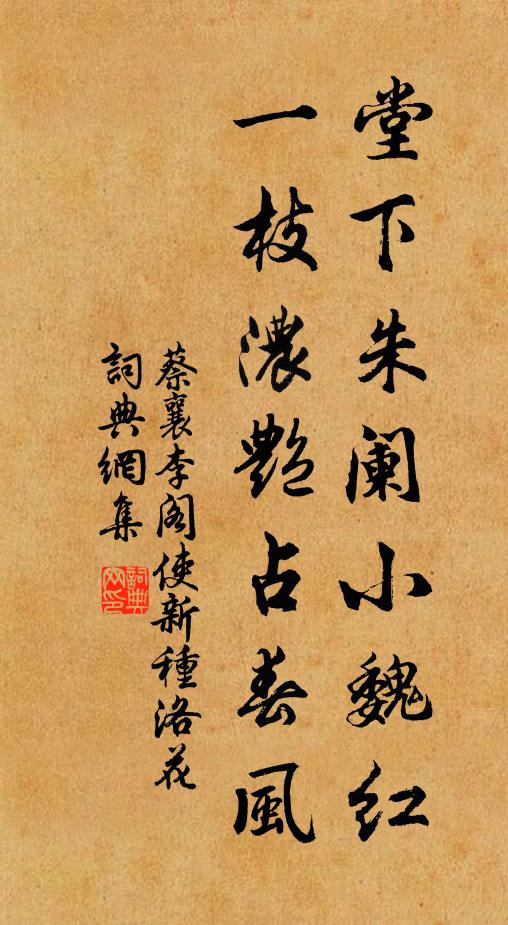 堂下朱阑小魏红
一枝濃艷占春風
蔡襄李阁使新種洛花
詞典網集
詞典网印